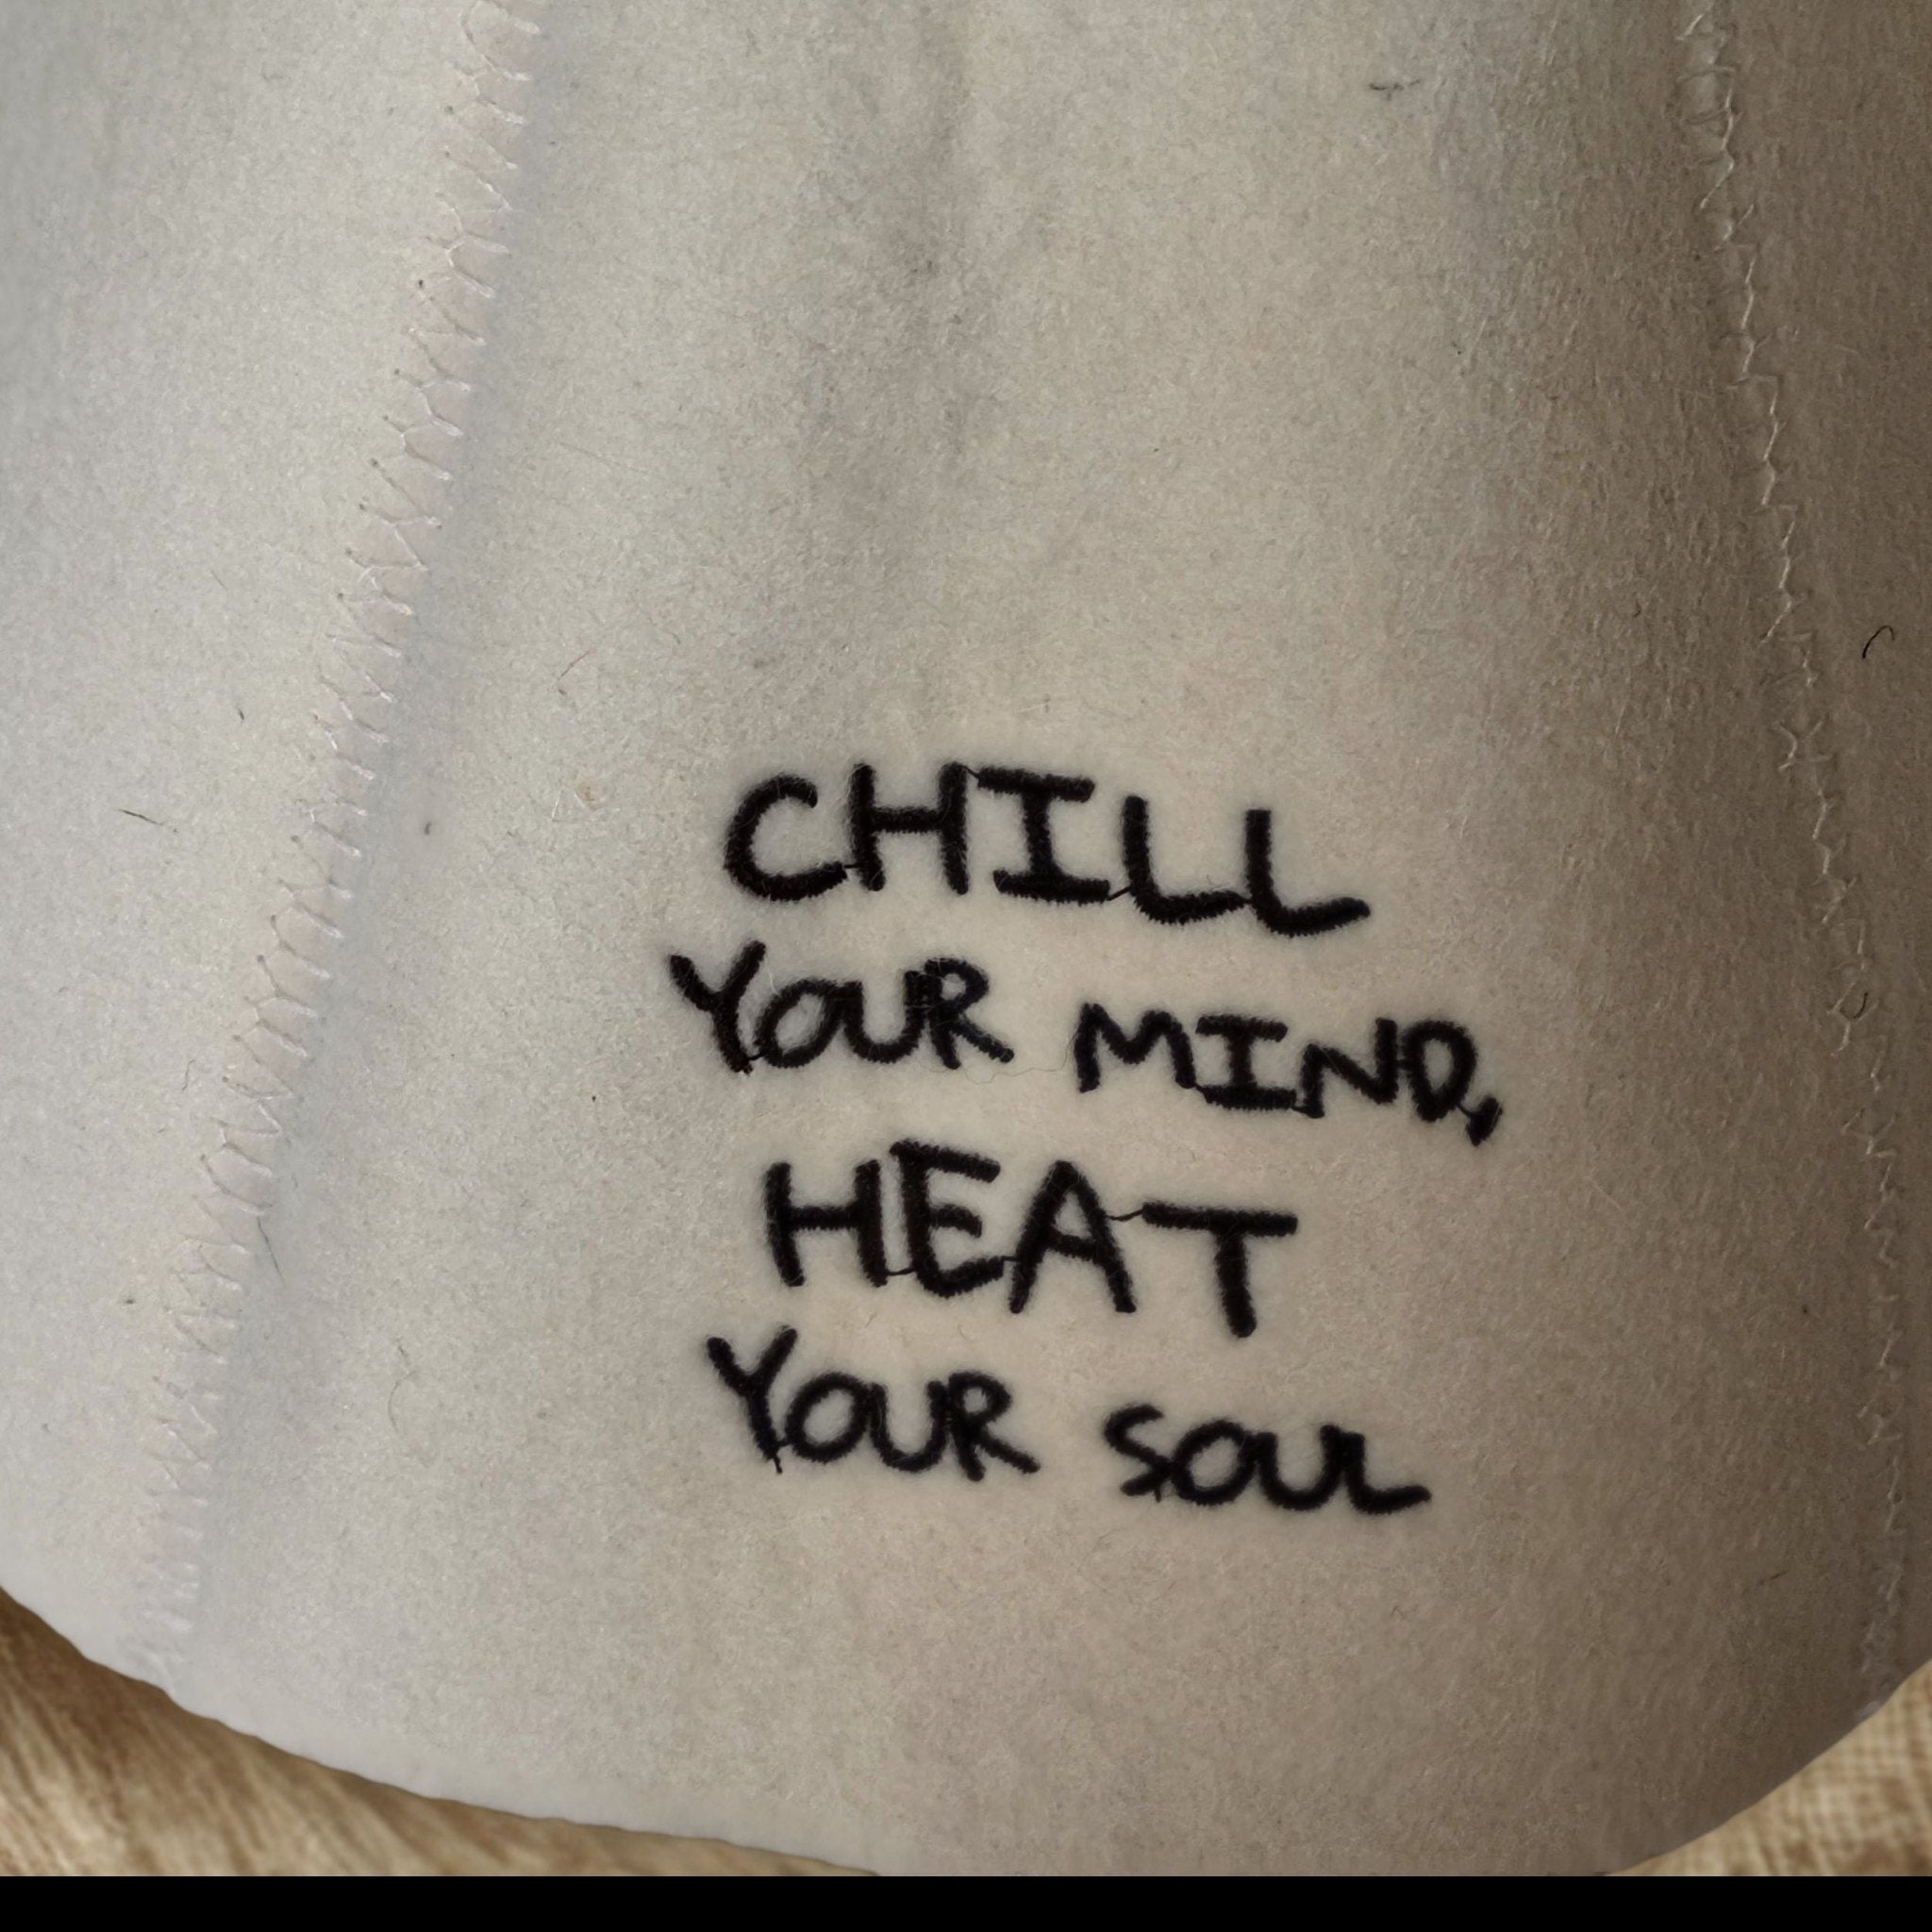 CHILL
YOUR MIND,
HEAT
YOUR SOUL